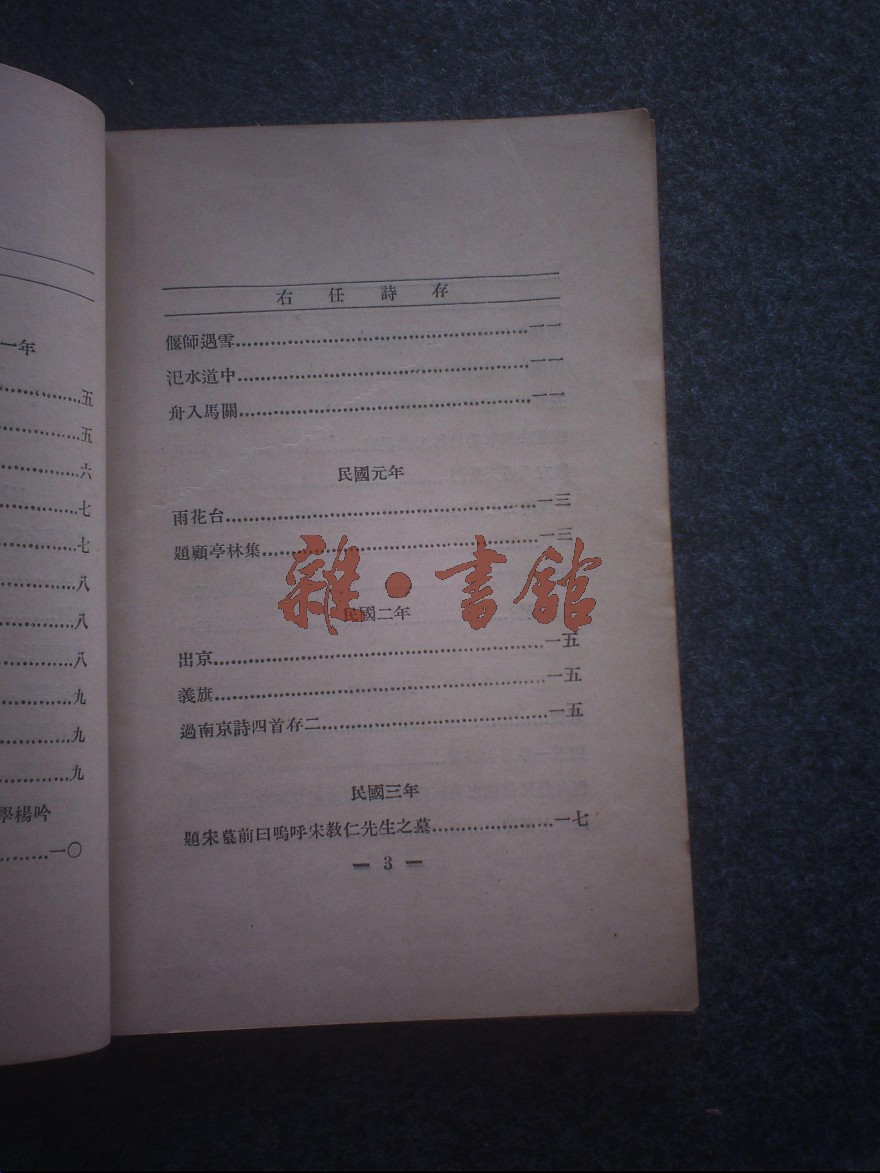 一年
五
五
六
七
七
八
八
八
九
九
九
學楊吟
一〇
右任詩存
偃師遇雪……一一
汜水道中……一一
舟入馬關……一一
民國元年
雨花台……一三
題顧亭林集……一三
民國二年
出京……一五
義旗……一五
過南京詩四首存二……一五
民國三年
題宋墓前曰嗚呼宋教仁先生之墓……一七
— 3 —
雜·書館